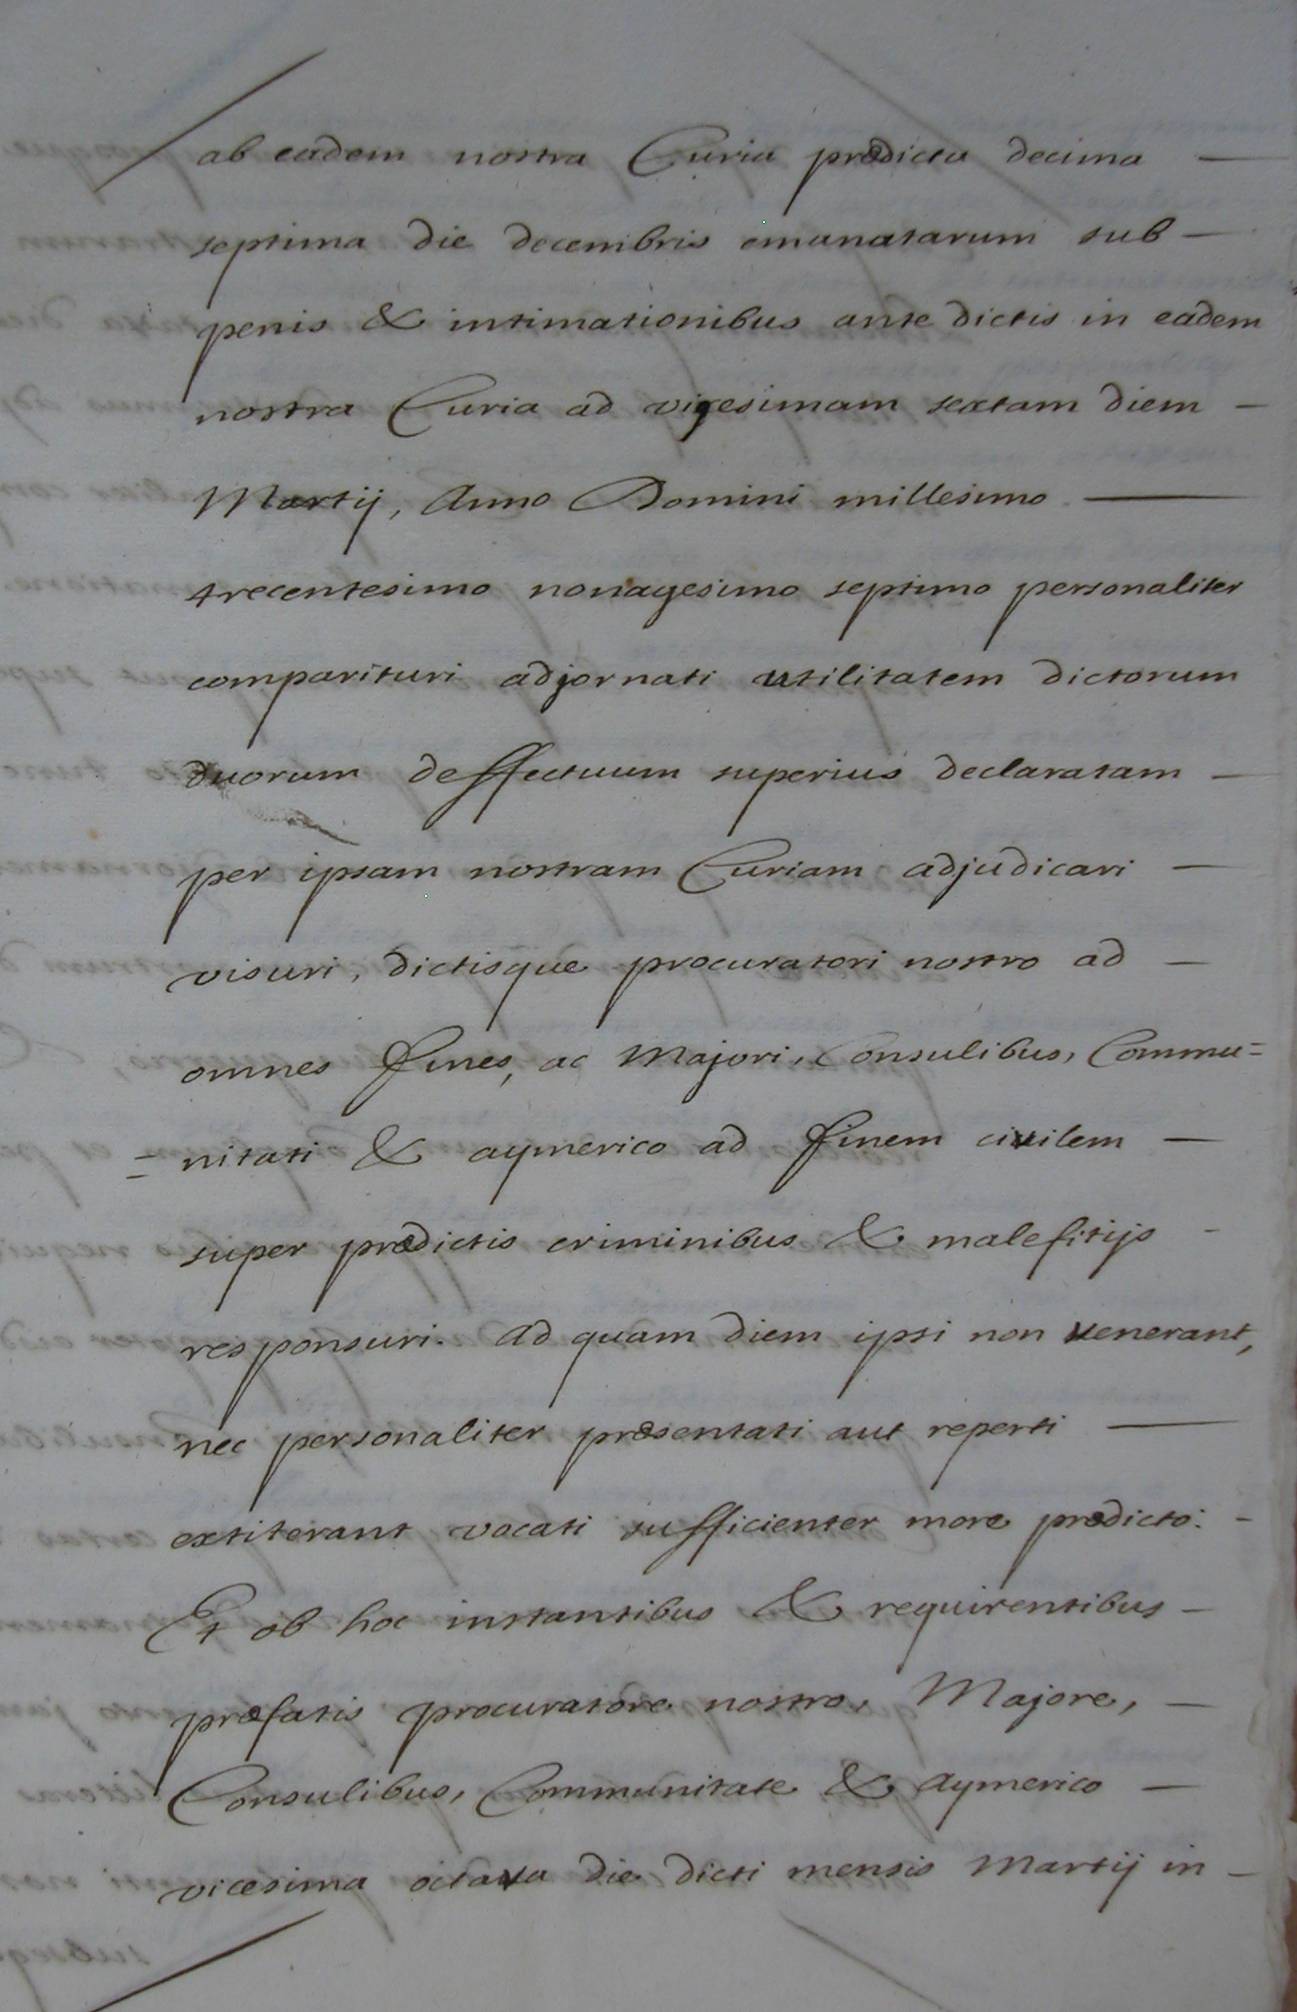 ab eadem nostra Curia prædicta decima —
septima die decembris emanatarum sub —
penis & intimationibus ante dictis in eadem
nostra Curia ad vigesimam sextam diem —
Martij, Anno Domini millesimo —
trecentesimo nonagesimo septimo personaliter
comparituri adjornati utilitatem dictorum
duorum deffectuum superius declaratam —
per ipsam nostram Curiam adjudicari —
visuri, dictisque procuratori nostro ad —
omnes fines, ac Majori, Consulibus, Commu=
=nitati & aymerico ad finem civilem —
super prædictis criminibus & malefitijs -
responsuri. Ad quam diem ipsi non venerant,
nec personaliter præsentati aut reperti —
extiterant vocati sufficienter more prædicto: -
Et ob hoc instantibus & requirentibus —
præfatis procuratore nostro, Majore, —
Consulibus, Communitate & Aymerico —
vicesima octava die dicti mensis Martij in —